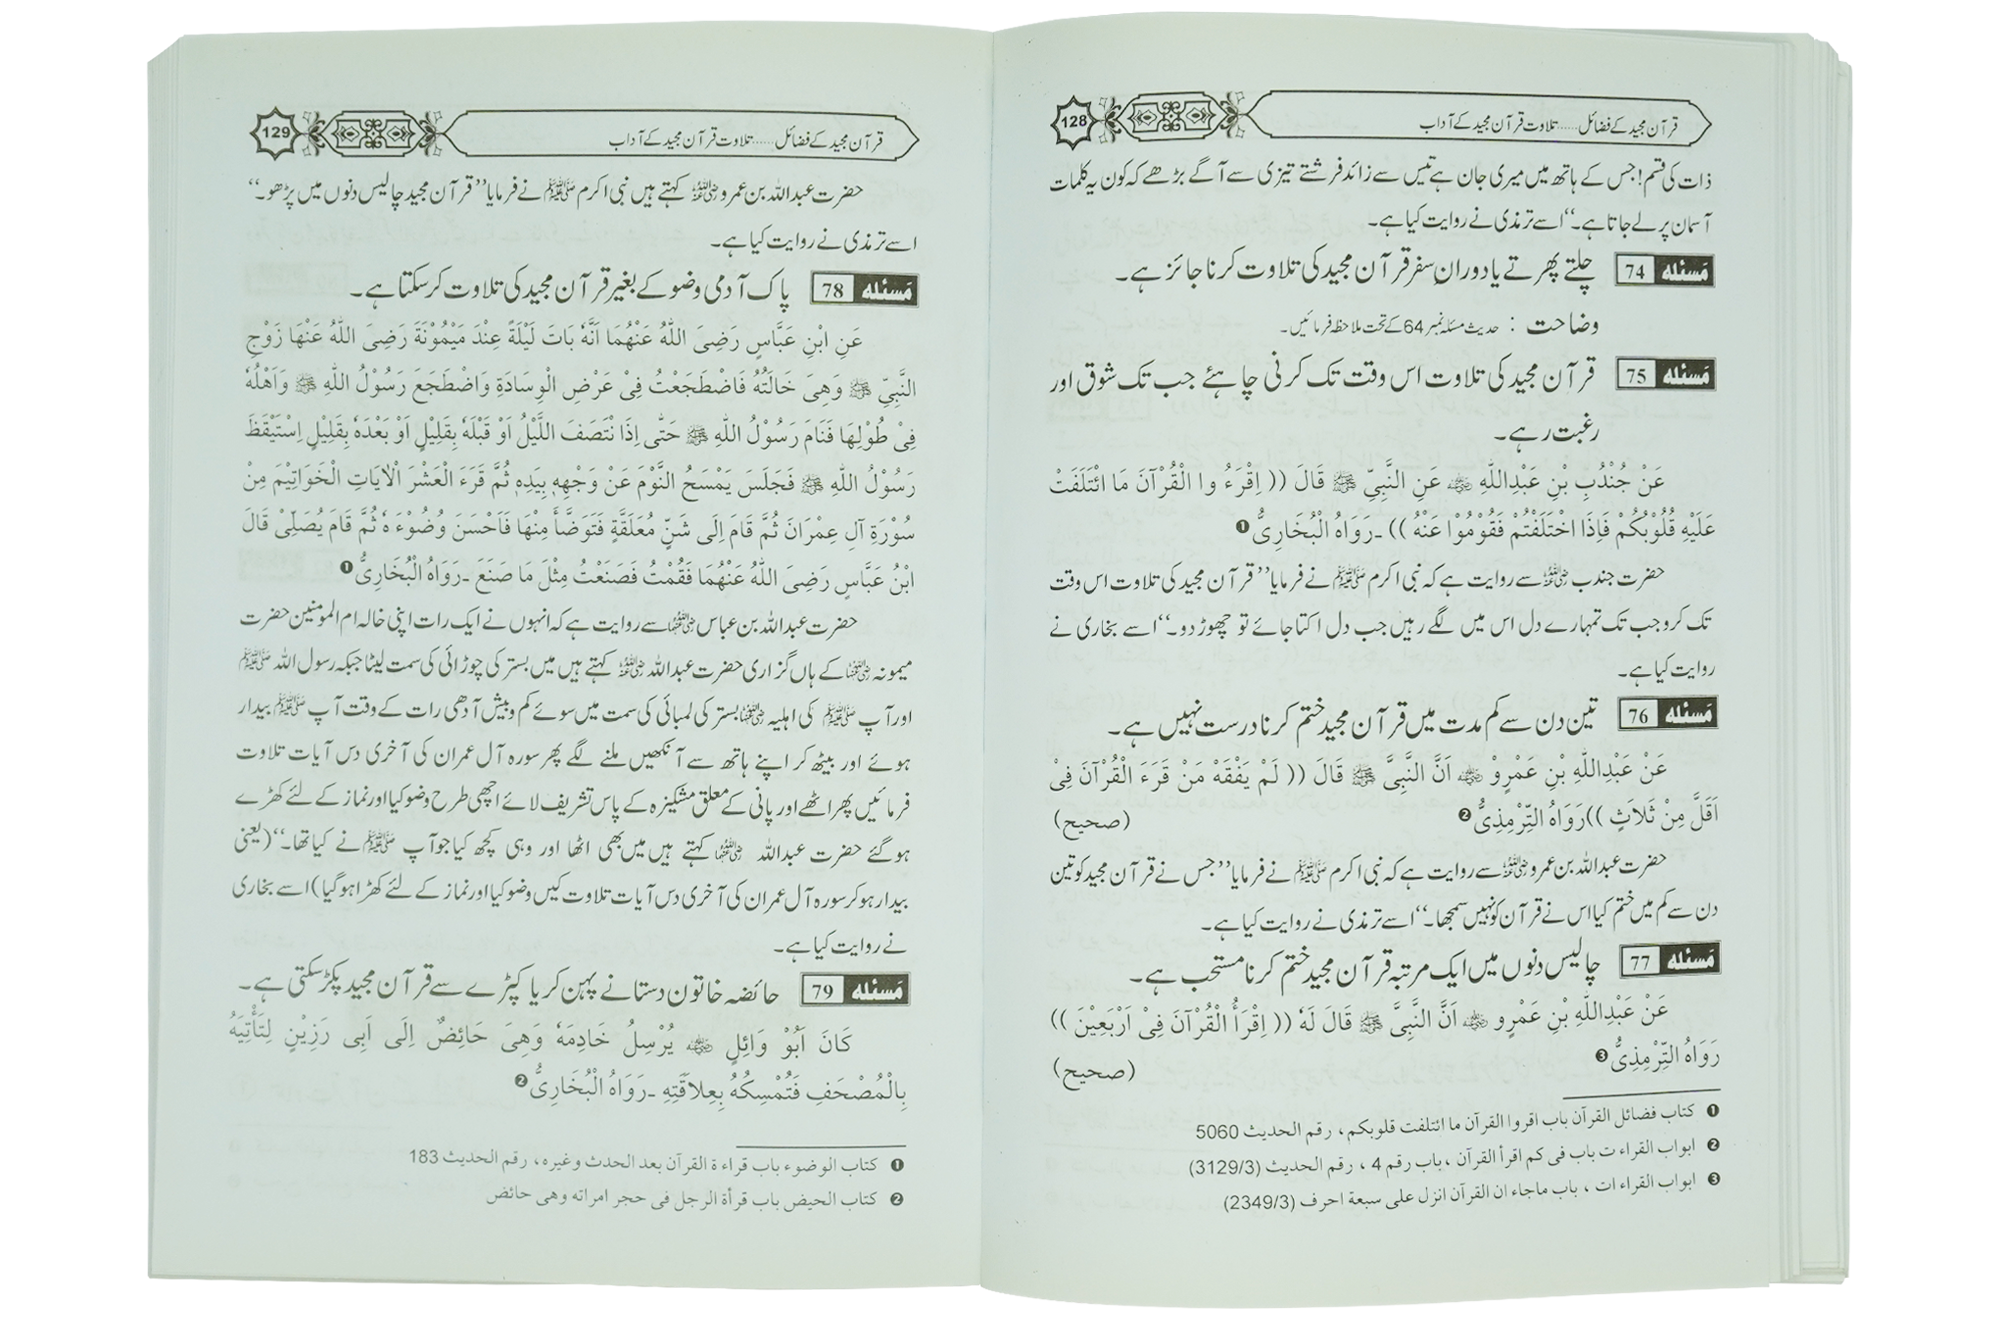 128
قرآن مجید کے فضائل......تلاوت قرآن مجید کے آداب
ذات کی قسم! جس کے ہاتھ میں میری جان ہے تیس سے زائد فرشتے تیزی سے آگے بڑھے کہ کون یہ کلمات
آسمان پر لے جاتا ہے۔‘‘ اسے ترمذی نے روایت کیا ہے۔
مَسئلہ 74 چلتے پھرتے یا دورانِ سفر قرآن مجید کی تلاوت کرنا جائز ہے۔
وضاحت : حدیث مسئلہ نمبر 64 کے تحت ملاحظہ فرمائیں۔
مَسئلہ 75 قرآن مجید کی تلاوت اس وقت تک کرنی چاہئے جب تک شوق اور
رغبت رہے۔
عَنْ جُنْدُبِ بْنِ عَبْدِاللّٰهِ ؓ عَنِ النَّبِيِّ ﷺ قَالَ (( اِقْرَءُ وا الْقُرْآنَ مَا ائْتَلَفَتْ
عَلَيْهِ قُلُوْبُكُمْ فَاِذَا اخْتَلَفْتُمْ فَقُوْمُوْا عَنْهُ )) ۔رَوَاهُ الْبُخَارِيُّ ❶
حضرت جندب ؓ سے روایت ہے کہ نبی اکرم ﷺ نے فرمایا ’’قرآن مجید کی تلاوت اس وقت
تک کرو جب تک تمہارے دل اس میں لگے رہیں جب دل اکتا جائے تو چھوڑ دو۔‘‘ اسے بخاری نے
روایت کیا ہے۔
مَسئلہ 76 تین دن سے کم مدت میں قرآن مجید ختم کرنا درست نہیں ہے۔
عَنْ عَبْدِاللّٰهِ بْنِ عَمْرٍوْ ؓ اَنَّ النَّبِيَّ ﷺ قَالَ (( لَمْ يَفْقَهْ مَنْ قَرَءَ الْقُرْآنَ فِيْ
اَقَلَّ مِنْ ثَلاَثٍ ))رَوَاهُ التِّرْمِذِيُّ ❷ (صحيح)
حضرت عبداللہ بن عمرو ؓ سے روایت ہے کہ نبی اکرم ﷺ نے فرمایا ’’جس نے قرآن مجید کو تین
دن سے کم میں ختم کیا اس نے قرآن کو نہیں سمجھا۔‘‘ اسے ترمذی نے روایت کیا ہے۔
مَسئلہ 77 چالیس دنوں میں ایک مرتبہ قرآن مجید ختم کرنا مستحب ہے۔
عَنْ عَبْدِاللّٰهِ بْنِ عَمْرٍو ؓ اَنَّ النَّبِيَّ ﷺ قَالَ لَهُ (( اِقْرَأْ الْقُرْآنَ فِيْ اَرْبَعِيْنَ ))
رَوَاهُ التِّرْمِذِيُّ ❸ (صحيح)
❶ كتاب فضائل القرآن باب اقروا القرآن ما ائتلفت قلوبكم، رقم الحديث 5060
❷ ابواب القراء ت باب فى كم اقرأ القرآن ،باب رقم 4 ، رقم الحديث (3129/3)
❸ ابواب القراء ات ، باب ماجاء ان القرآن انزل على سبعة احرف (2349/3)
129
قرآن مجید کے فضائل......تلاوت قرآن مجید کے آداب
حضرت عبداللہ بن عمرو ؓ کہتے ہیں نبی اکرم ﷺ نے فرمایا ’’قرآن مجید چالیس دنوں میں پڑھو۔‘‘
اسے ترمذی نے روایت کیا ہے۔
مَسئلہ 78 پاک آدمی وضو کے بغیر قرآن مجید کی تلاوت کر سکتا ہے۔
عَنِ ابْنِ عَبَّاسٍ رَضِيَ اللّٰهُ عَنْهُمَا اَنَّهُ بَاتَ لَيْلَةً عِنْدَ مَيْمُوْنَةَ رَضِيَ اللّٰهُ عَنْهَا زَوْجِ
النَّبِيِّ ﷺ وَهِيَ خَالَتُهُ فَاضْطَجَعْتُ فِيْ عَرْضِ الْوِسَادَةِ وَاضْطَجَعَ رَسُوْلُ اللّٰهِ ﷺ وَاَهْلُهُ
فِيْ طُوْلِهَا فَنَامَ رَسُوْلُ اللّٰهِ ﷺ حَتّٰى اِذَا نْتَصَفَ اللَّيْلُ اَوْ قَبْلَهُ بِقَلِيْلٍ اَوْ بَعْدَهُ بِقَلِيْلٍ اِسْتَيْقَظَ
رَسُوْلُ اللّٰهِ ﷺ فَجَلَسَ يَمْسَحُ النَّوْمَ عَنْ وَجْهِهِ بِيَدِهِ ثُمَّ قَرَءَ الْعَشْرَ الْاٰيَاتِ الْخَوَاتِيْمَ مِنْ
سُوْرَةِ آلِ عِمْرَانَ ثُمَّ قَامَ اِلَى شَنٍّ مُعَلَّقَةٍ فَتَوَضَّأَ مِنْهَا فَاَحْسَنَ وُضُوْءَ هُ ثُمَّ قَامَ يُصَلِّيْ قَالَ
ابْنُ عَبَّاسٍ رَضِيَ اللّٰهُ عَنْهُمَا فَقُمْتُ فَصَنَعْتُ مِثْلَ مَا صَنَعَ ۔رَوَاهُ الْبُخَارِيُّ ❶
حضرت عبداللہ بن عباس ؓ سے روایت ہے کہ انہوں نے ایک رات اپنی خالہ ام المومنین حضرت
میمونہ ؓ کے ہاں گزاری حضرت عبداللہ ؓ کہتے ہیں میں بستر کی چوڑائی کی سمت لیٹا جبکہ رسول اللہ ﷺ
اور آپ ﷺ کی اہلیہ ؓ بستر کی لمبائی کی سمت میں سوئے کم و بیش آدھی رات کے وقت آپ ﷺ بیدار
ہوئے اور بیٹھ کر اپنے ہاتھ سے آنکھیں ملنے لگے پھر سورہ آل عمران کی آخری دس آیات تلاوت
فرمائیں پھر اٹھے اور پانی کے معلق مشکیزہ کے پاس تشریف لائے اچھی طرح وضو کیا اور نماز کے لئے کھڑے
ہو گئے حضرت عبداللہ ؓ کہتے ہیں میں بھی اٹھا اور وہی کچھ کیا جو آپ ﷺ نے کیا تھا۔‘‘ (یعنی
بیدار ہو کر سورہ آل عمران کی آخری دس آیات تلاوت کیں وضو کیا اور نماز کے لئے کھڑا ہو گیا) اسے بخاری
نے روایت کیا ہے۔
مَسئلہ 79 حائضہ خاتون دستانے پہن کر یا کپڑے سے قرآن مجید پکڑ سکتی ہے۔
كَانَ اَبُوْ وَائِلٍ ؓ يُرْسِلُ خَادِمَهُ وَهِيَ حَائِضٌ اِلَى اَبِى رَزِيْنٍ لِتَأْتِيَهُ
بِالْمُصْحَفِ فَتُمْسِكُهُ بِعِلاَقَتِهِ ۔رَوَاهُ الْبُخَارِيُّ ❷
❶ كتاب الوضوء باب قراء ة القرآن بعد الحدث وغيره، رقم الحديث 183
❷ كتاب الحيض باب قرأة الرجل فى حجر امراته وهى حائض